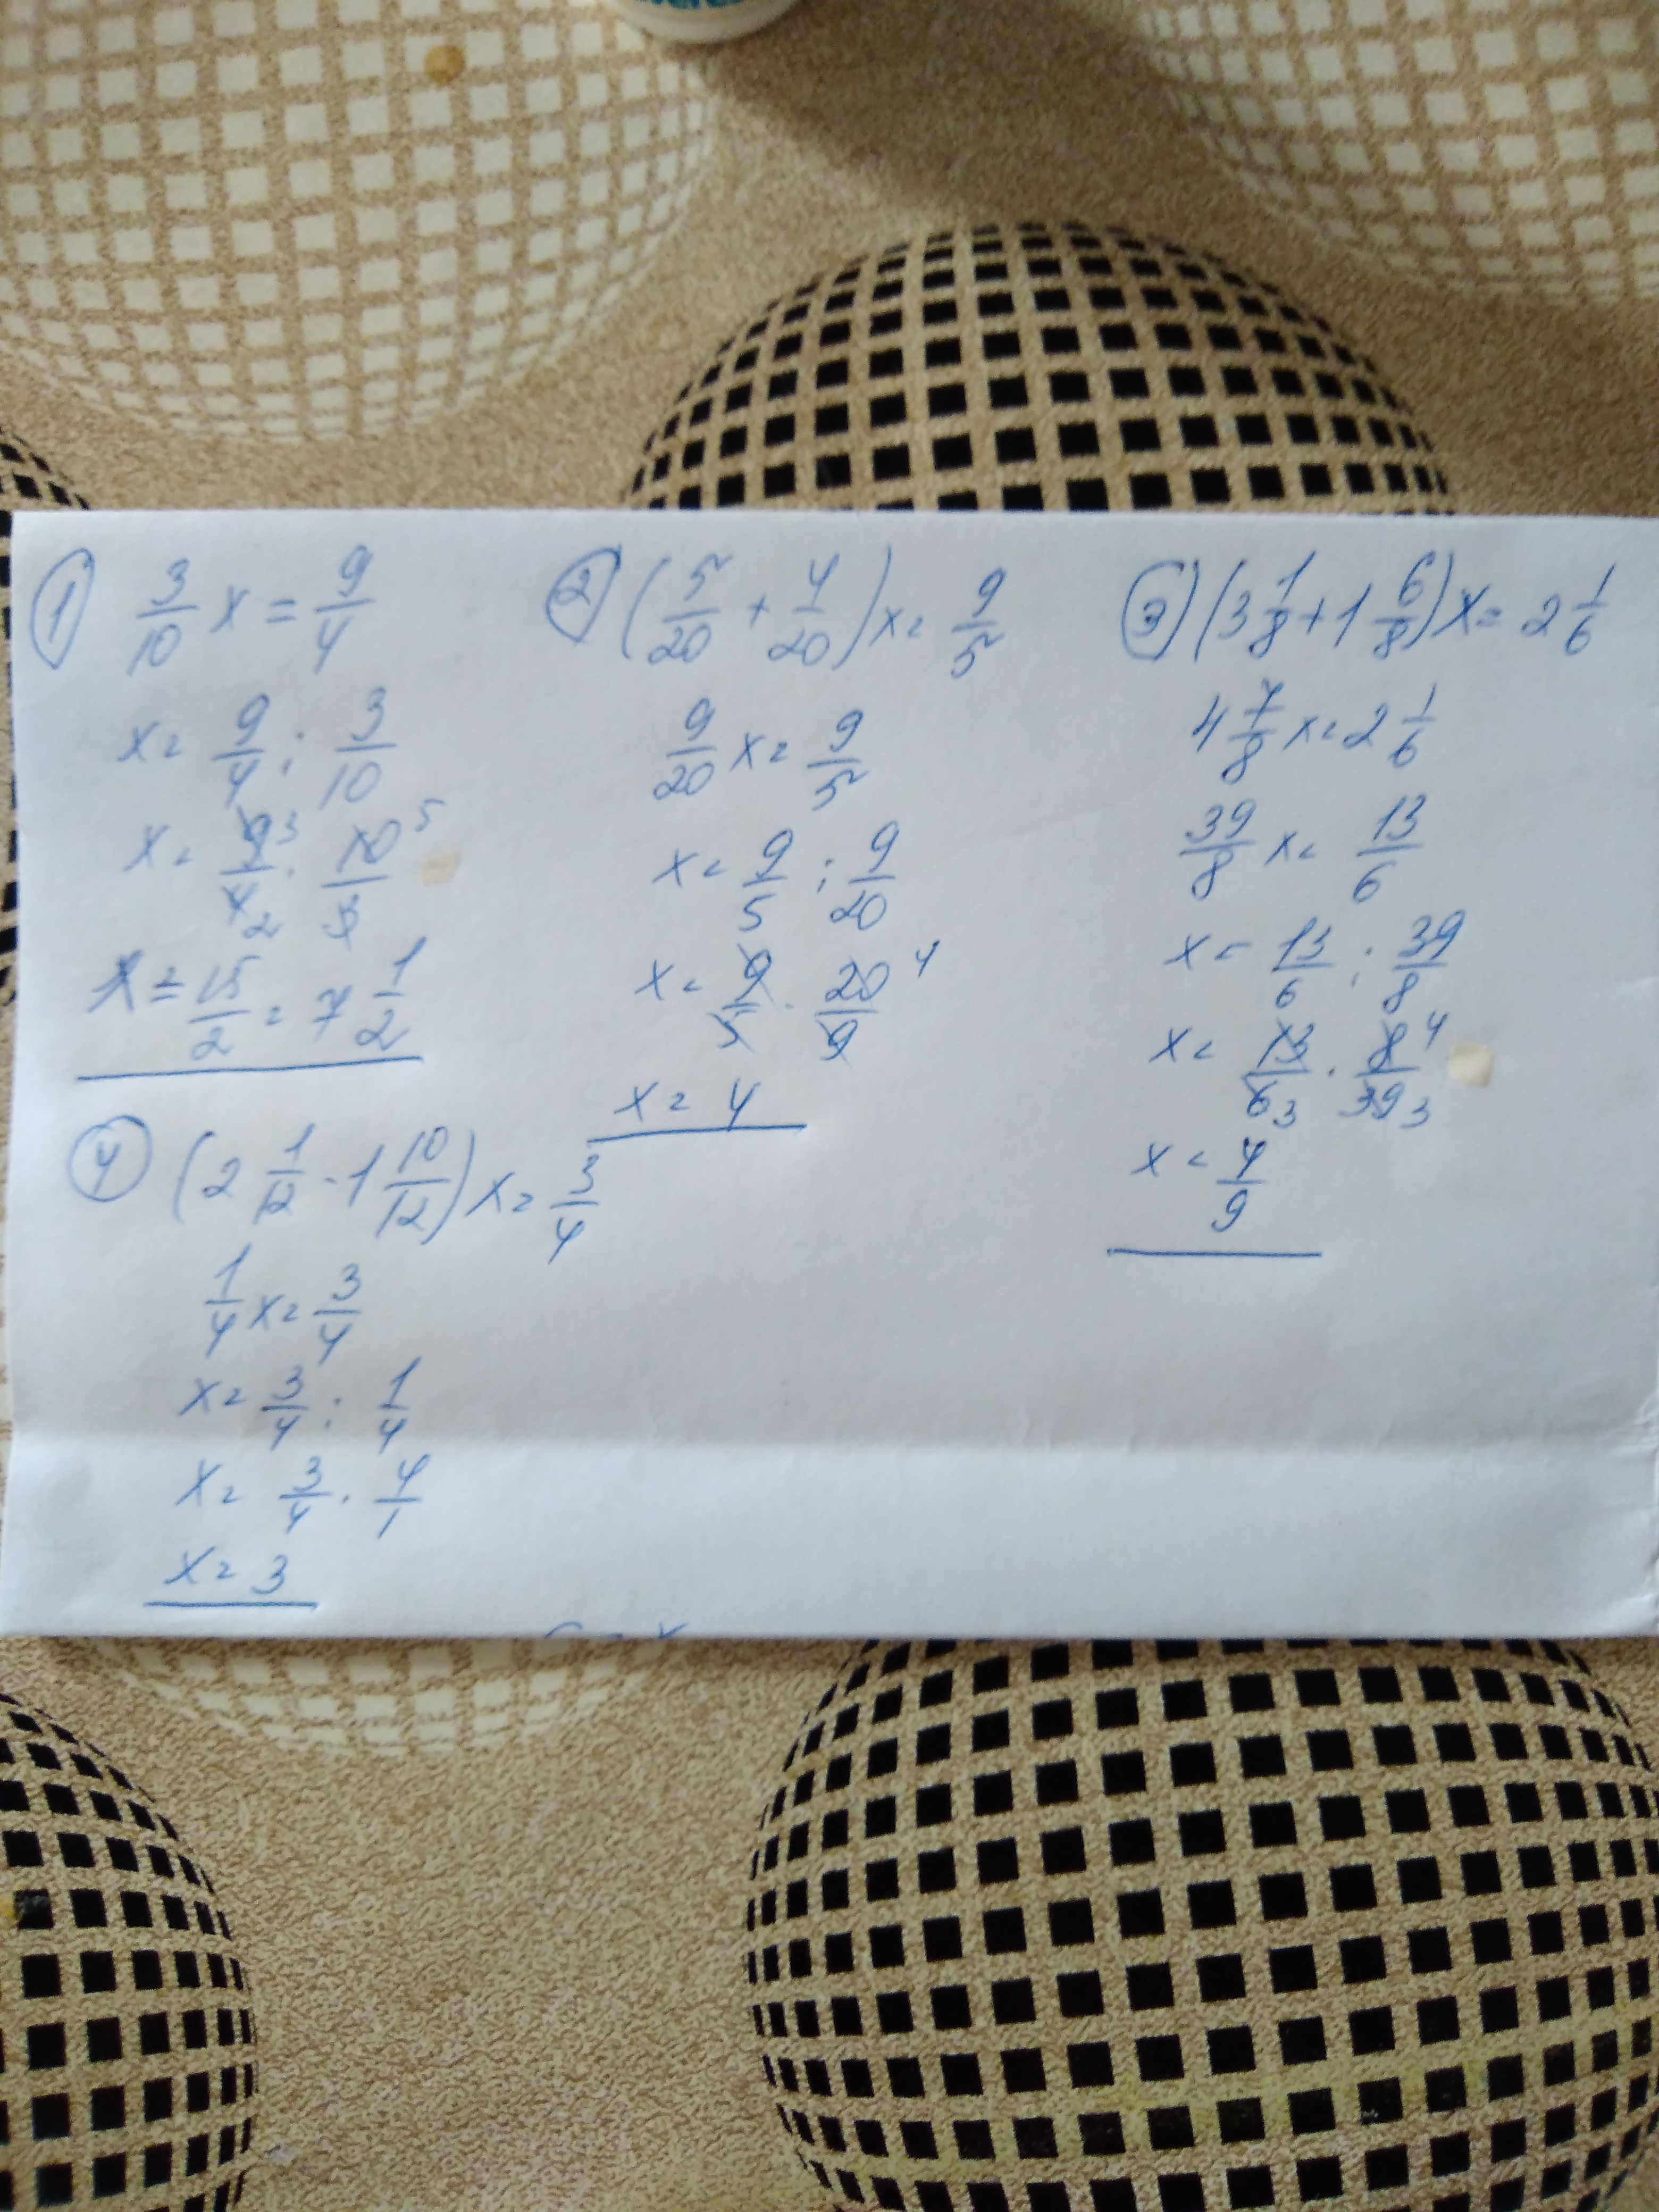 ① 3/10 x = 9/4
x = 9/4 : 3/10
x = 9³/4₂ · 10⁵/3
x = 15/2 = 7 1/2
② (5/20 + 4/20) x = 9/5
9/20 x = 9/5
x = 9/5 : 9/20
x = 9/5 · 20⁴/9
x = 4
③ (3 1/8 + 1 6/8) x = 2 1/6
4 7/8 x = 2 1/6
39/8 x = 13/6
x = 13/6 : 39/8
x = 13/6₃ · 8⁴/39₃
x = 4/9
④ (2 1/12 - 1 10/12) x = 3/4
1/4 x = 3/4
x = 3/4 : 1/4
x = 3/4 · 4/1
x = 3